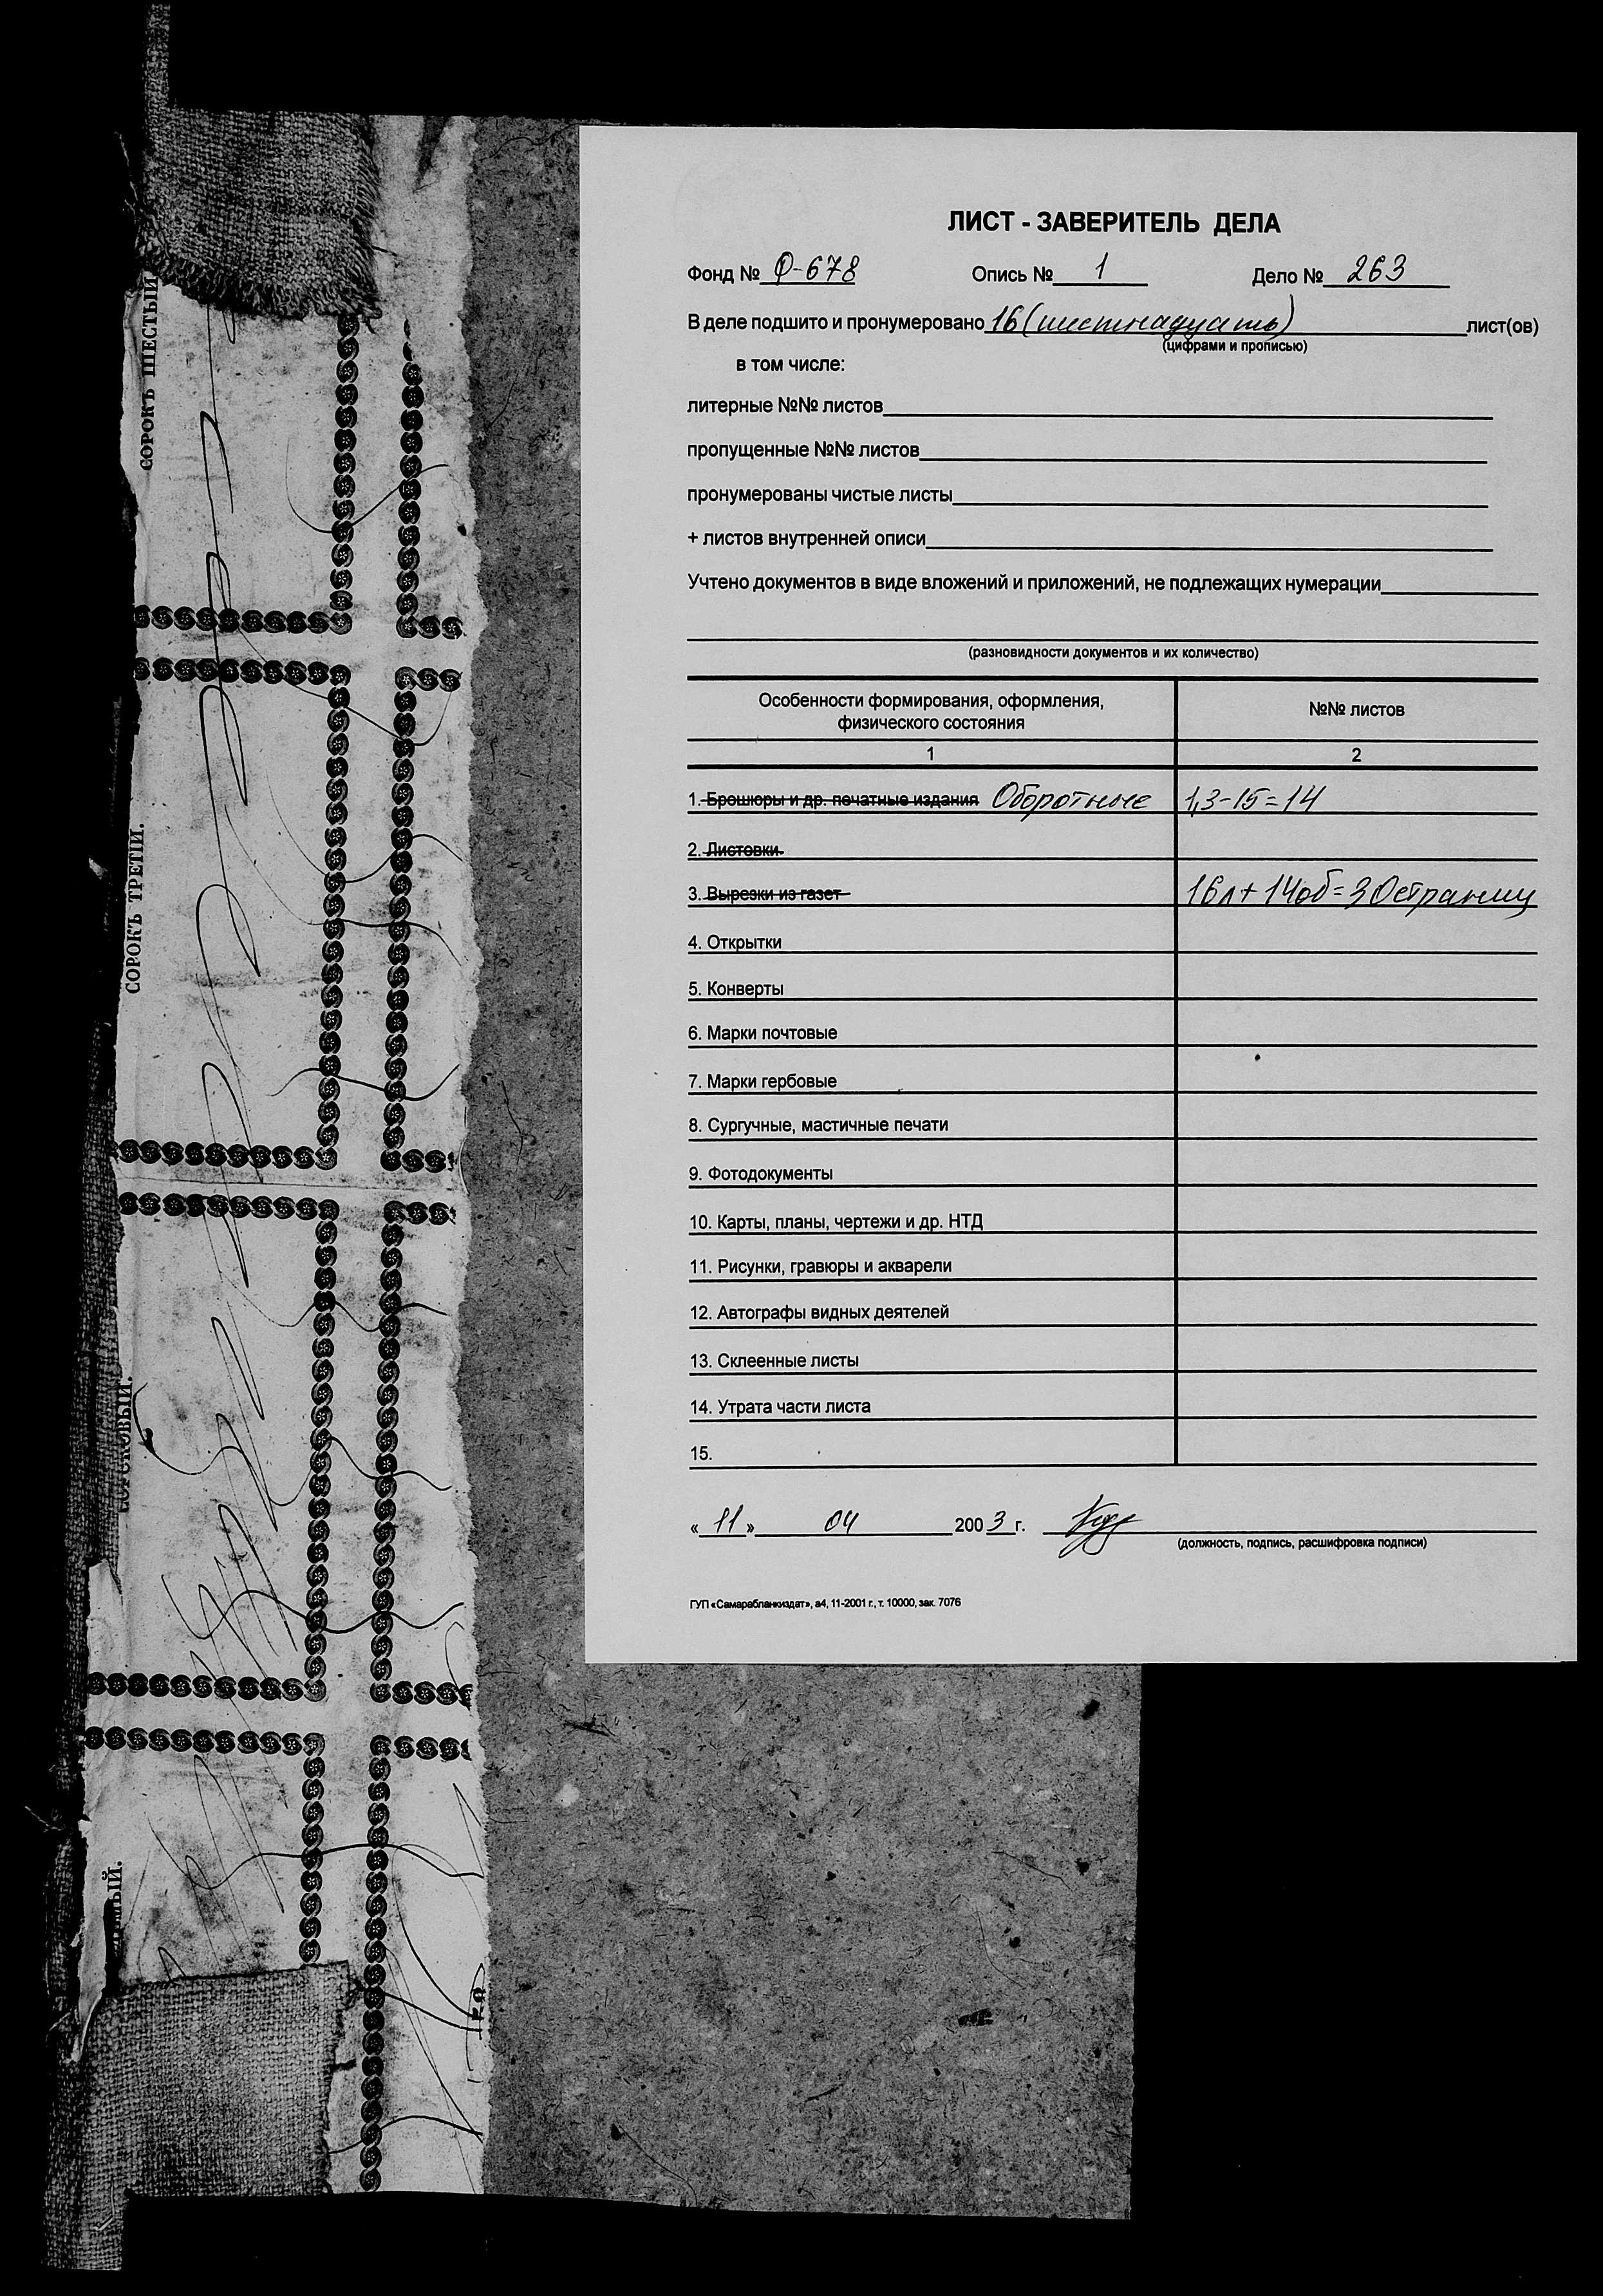 ЛИСТ - ЗАВЕРИТЕЛЬ ДЕЛА
Фонд № Ф-678 Опись № 1 Дело № 263
В деле подшито и пронумеровано 16 (шестнадцать) лист(ов)
(цифрами и прописью)
в том числе:
литерные №№ листов
пропущенные №№ листов
пронумерованы чистые листы
+ листов внутренней описи
Учтено документов в виде вложений и приложений, не подлежащих нумерации
(разновидности документов и их количество)
Особенности формирования, оформления,
физического состояния
№№ листов
1 2
1. Брошюры и др. печатные издания Оборотные 1,3-15=14
2. Листовки.
3. Вырезки из газет 16л+14об=30страниц
4. Открытки
5. Конверты
6. Марки почтовые
7. Марки гербовые
8. Сургучные, мастичные печати
9. Фотодокументы
10. Карты, планы, чертежи и др. НТД
11. Рисунки, гравюры и акварели
12. Автографы видных деятелей
13. Склеенные листы
14. Утрата части листа
15.
« 11 » 04 2003 г.
(должность, подпись, расшифровка подписи)
ГУП «Самарабланкиздат», а4, 11-2001 г., т. 10000, зак. 7076
СОРОКЪ ШЕСТЫЙ
СОРОКЪ ТРЕТІЙ.